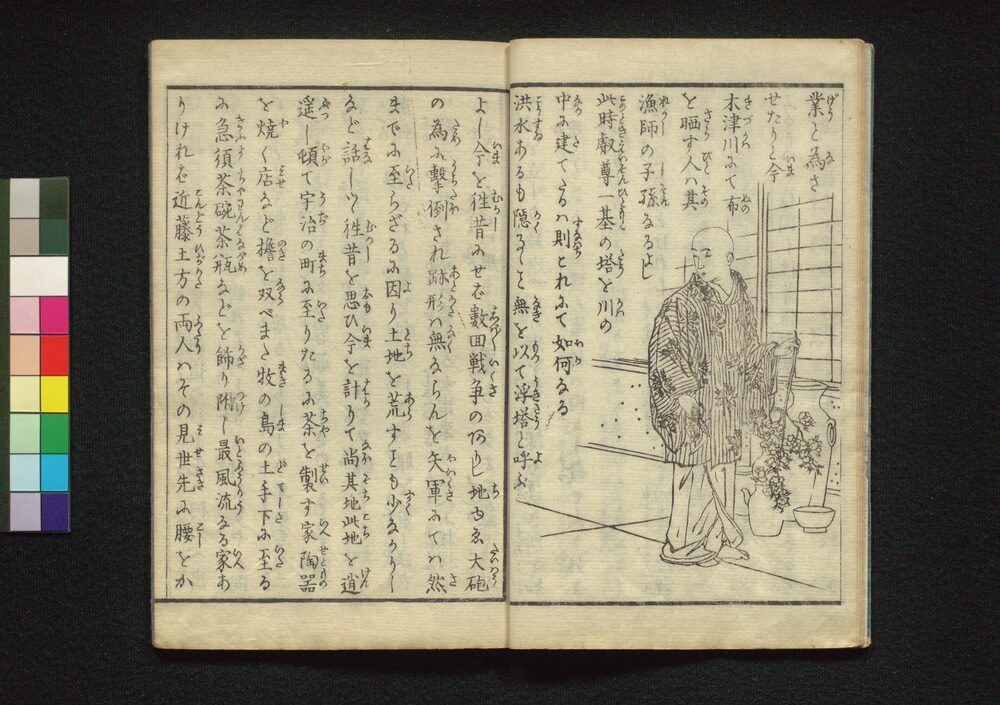 業と為さ
せたりと今
木津川にて布
を晒す人ハ其
漁師の子孫なるよし
此時叡尊一基の塔を川の
中に建てたるハ則これにて如何なる
洪水あるも隠るゝこと無を以て浮塔と呼ぶ
よし今を徃昔にせば数回戦争のありし地ゆゑ大砲
の為に撃倒され跡形ハ無ならんを矢軍にてハ然
までに至らざるに因り土地を荒すことも少なかりし
など話しつゝ徃昔を思ひ今を計りて尚其地此地を逍
遥し頓て宇治の町に至りたるに茶を製す家陶器
を焼く店など檐を双べまた牧の島の土手下に至る
に急須茶碗茶瓶などを飾り附し最風流なる家あ
りければ近藤土方の両人ハその見世先に腰をか